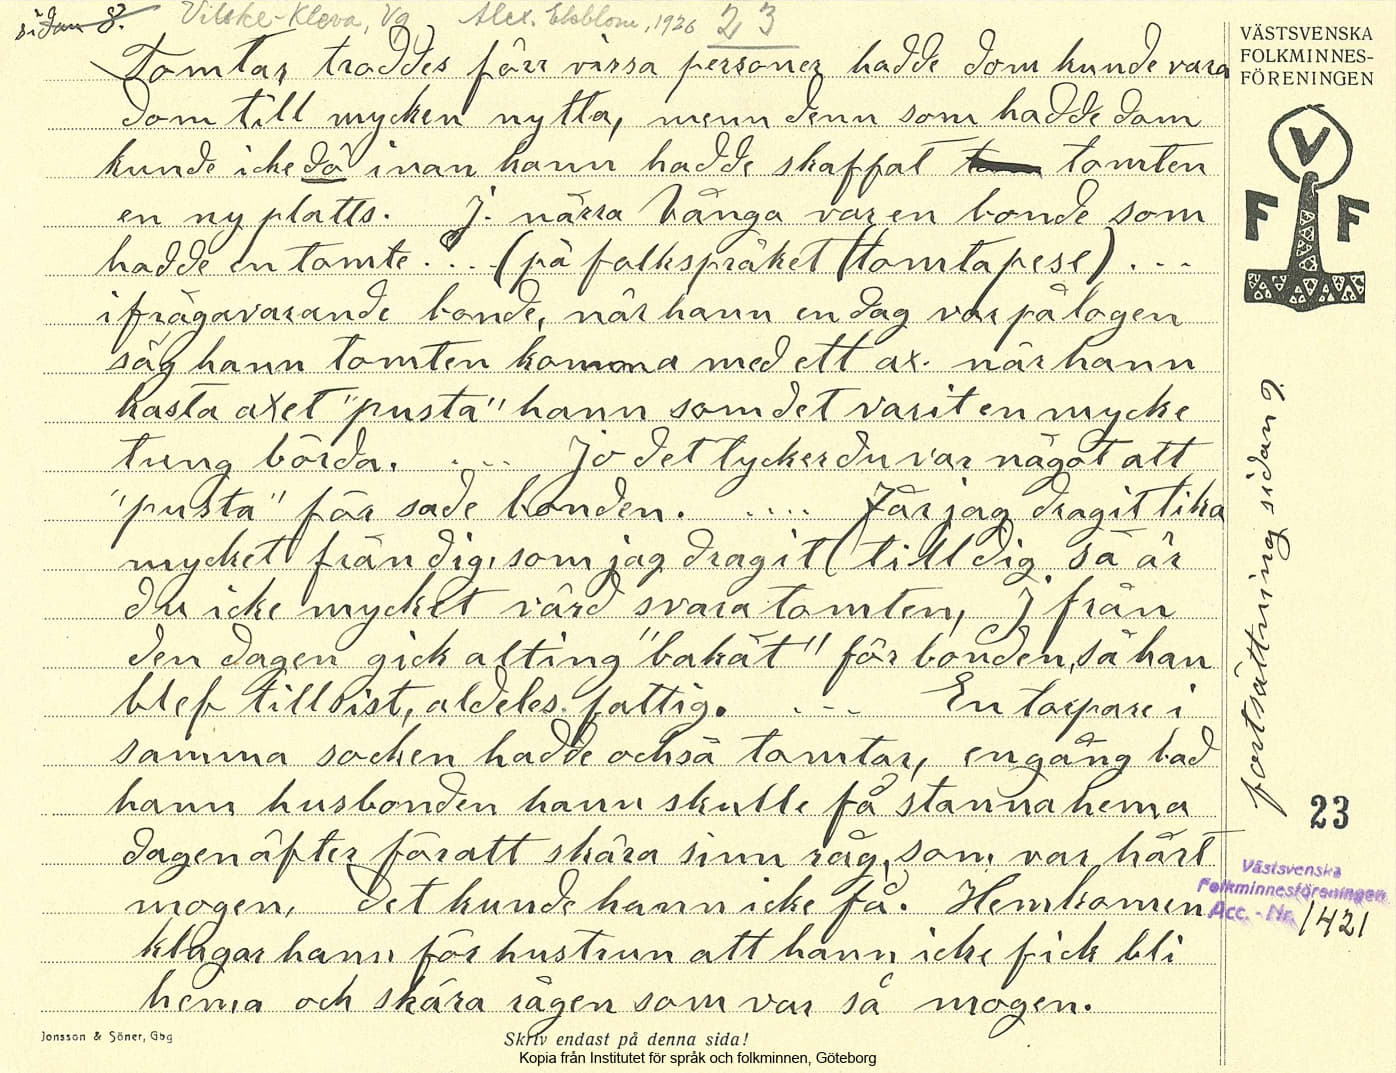 sidan 8. Vilske-Kleva, Vg Alex. Ekblom, 1926 23
Tomtar troddes förr vissa personer hadde dom kunde vara
dom till mycken nytta, menn denn som hadde dom
kunde icke dö inan hann hadde skaffat tomten
en ny platts. J. närra Vånga var en bonde som
hadde en tomte . . . (på folkspråket (tomtapese) . - -
ifrågavarande bonde, när hann en dag var på logen
såg hann tomten komma med ett ax. när hann
kasta axet "pusta" hann som det varit en mycke
tung börda. . - - Jo det tycker du var något att
"pusta" för sade bonden. . . . . Får jag dragit lika
mycket från dig, som jag dragit (till dig så är
du icke mycket värd svara tomten, J från
den dagen gick alting "bakåt" för bonden, så han
blef till sist, aldeles fattig. - - - En torpare i
samma socken hadde också tomtar, en gång bad
hann husbonden hann skulle få stanna hema
dagen äfter för att skära sinn råg, som var hårt
mogen, det kunde hann icke få. Hemkomen
klagar hann för hustrun att hann icke fick bli
hema och skära rågen som var så mogen.
Jonsson & Söner, Gbg
Skriv endast på denna sida!
Kopia från Institutet för språk och folkminnen, Göteborg
VÄSTSVENSKA
FOLKMINNES-
FÖRENINGEN
V
F F
fortsättning sidan 9.
23
Västsvenska
Folkminnesföreningen
Acc. - Nr. 1421